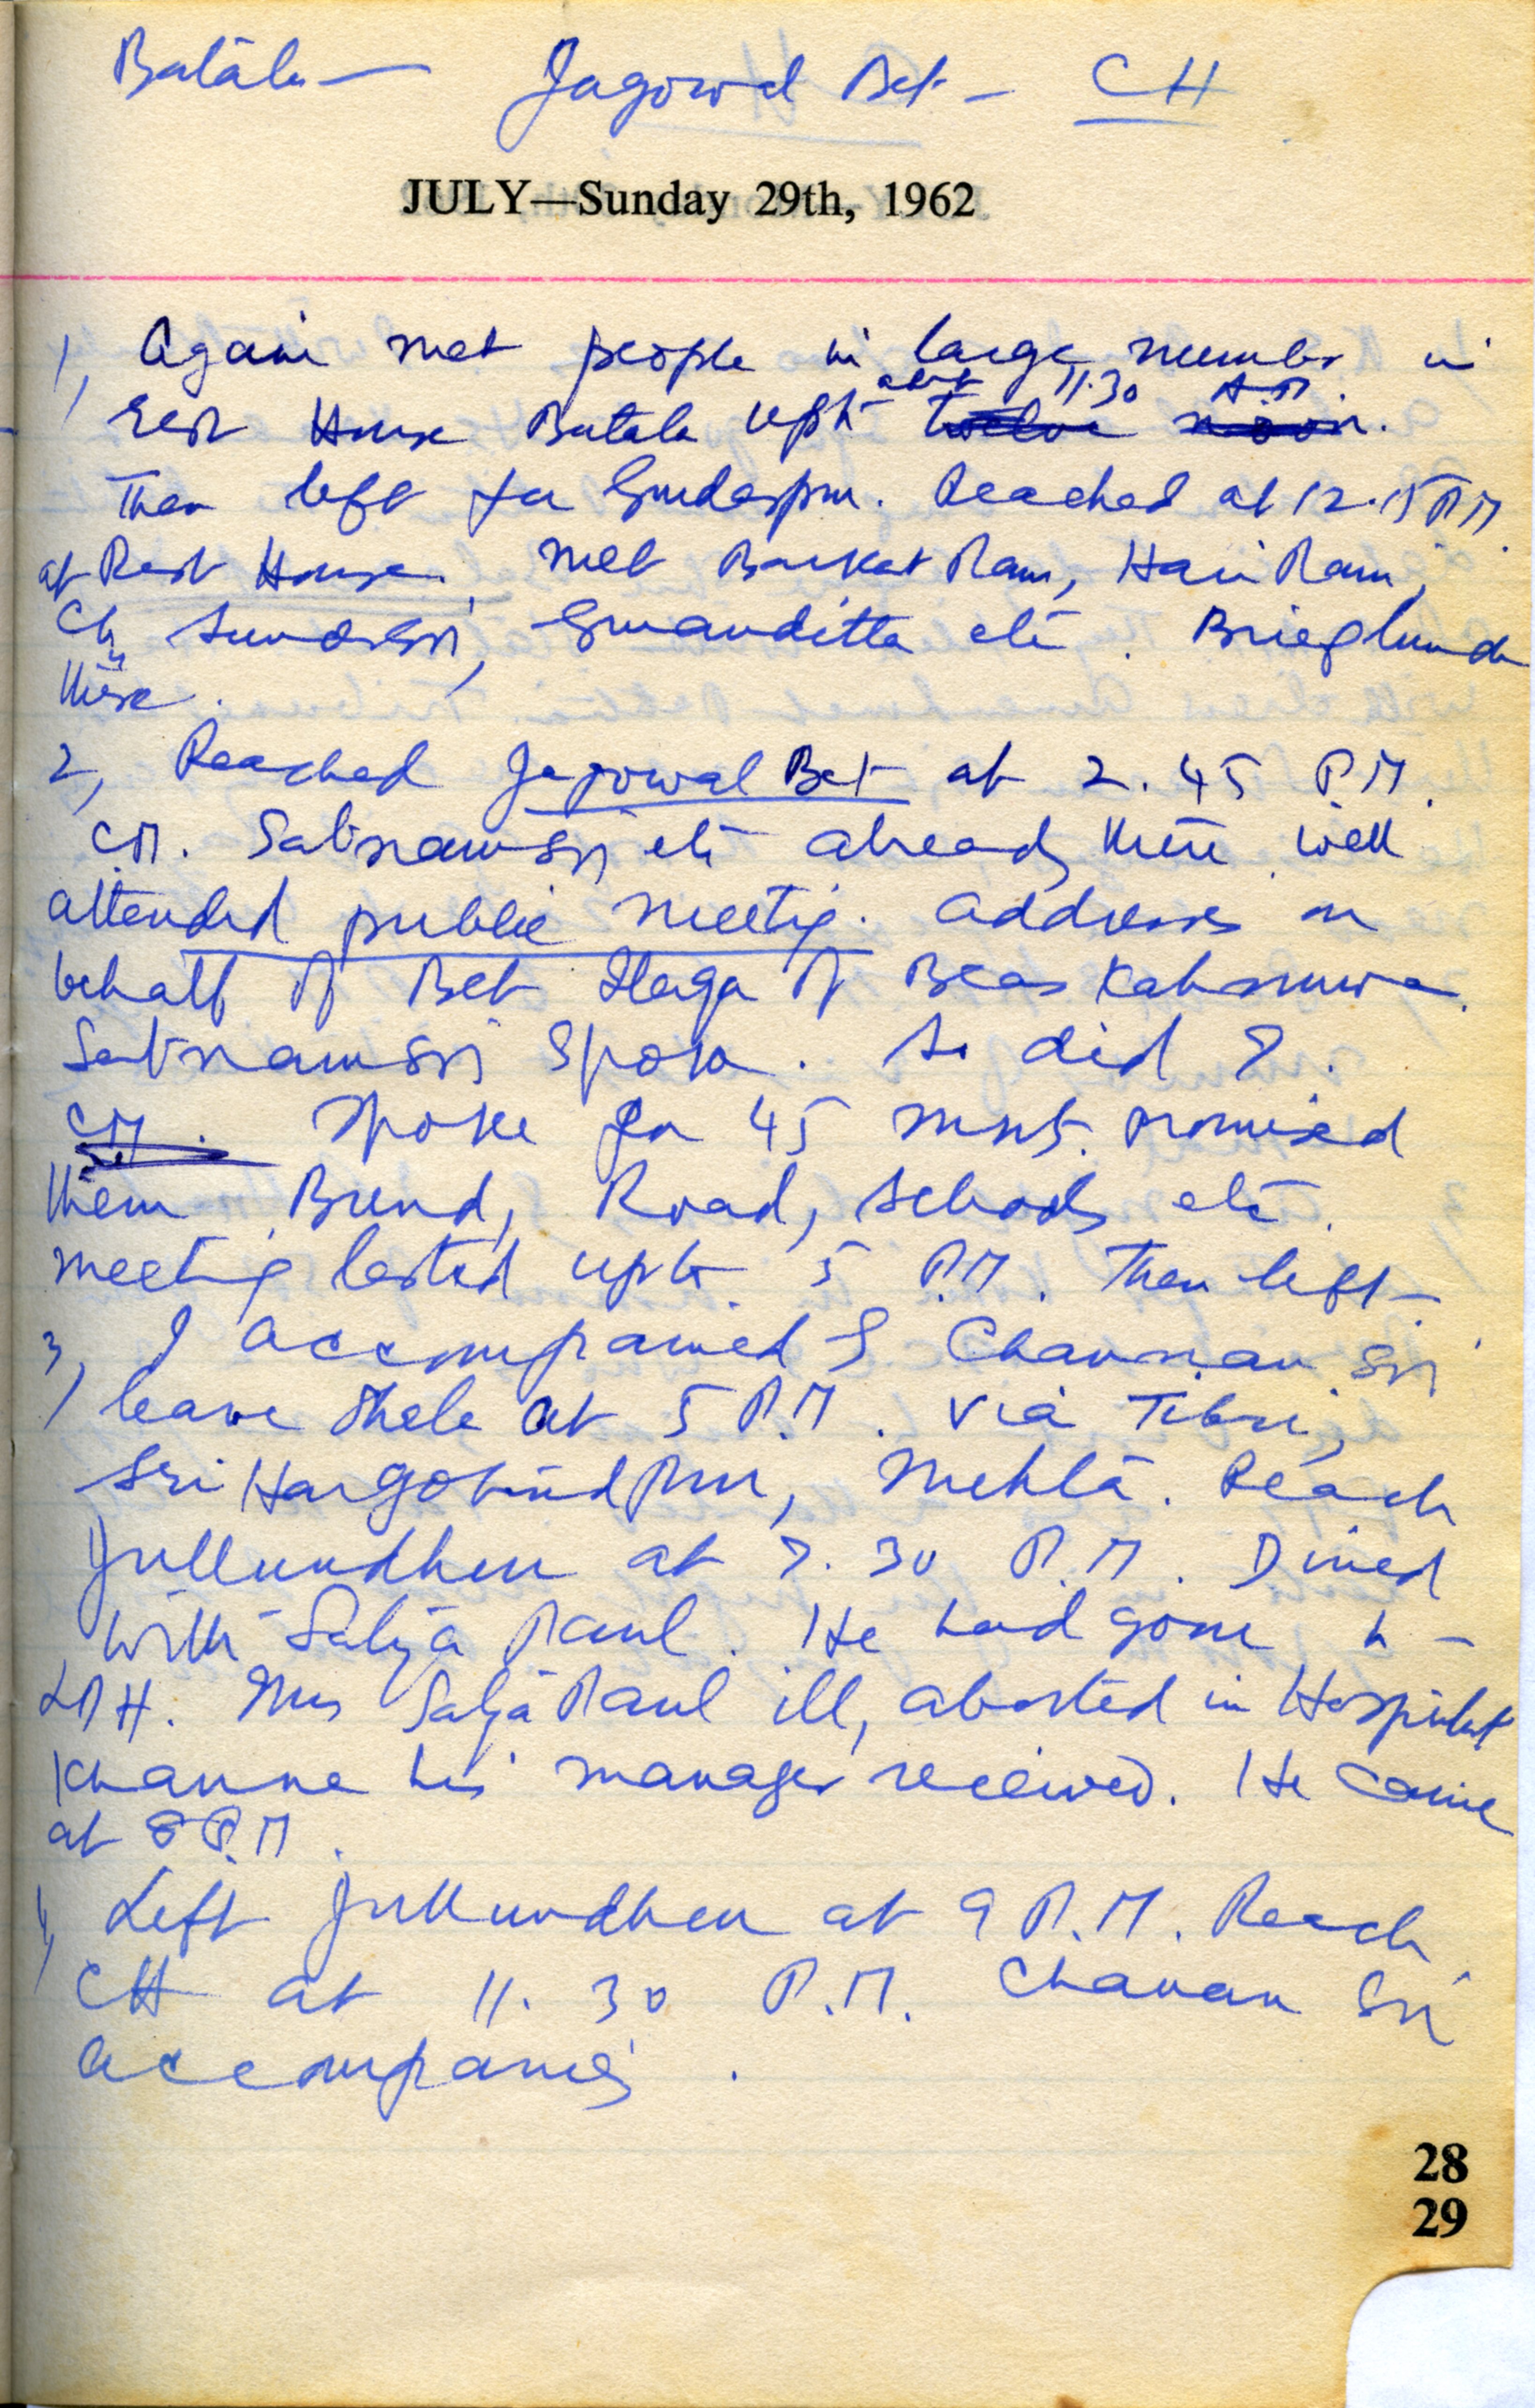 Batala — Jagowal Bet — CH
JULY—Sunday 29th, 1962
1, Again met people in large number in
Rest House Batala upto about 11.30 A.M.
Then left for Gurdaspur. Reached at 12.15 P.M.
at Rest House. Met Barkat Ram, Hari Ram,
Ch Sunder Sri, Guranditta etc. Brief lunch
there.
2, Reached Jagowal Bet at 2.45 P.M.
CM. Satnam Sri etc already there. well
attended public meeting. address on
behalf of Bet Ilaqa of Beas Kahnuwan.
Satnam Sri spoke. So did I.
CM. spoke for 45 mnts. promised
them Bund, Road, Schools etc.
meeting lasted upto 5 P.M. Then left.
3, I accompanied S Channan Sri
leave at 5 P.M. via Tibri,
Sri Hargobindpur, Mehta. Reach
Jullundhur at 7.30 P.M. Dined
with Satya Paul. He had gone to
LDH. Mrs Satya Paul ill, aborted in Hospital
Khanna his manager received. He came
at 8 P.M.
4, Left Jullundhur at 9 P.M. Reach
CH at 11.30 P.M. Chanan Sri
accompanies.
28
29